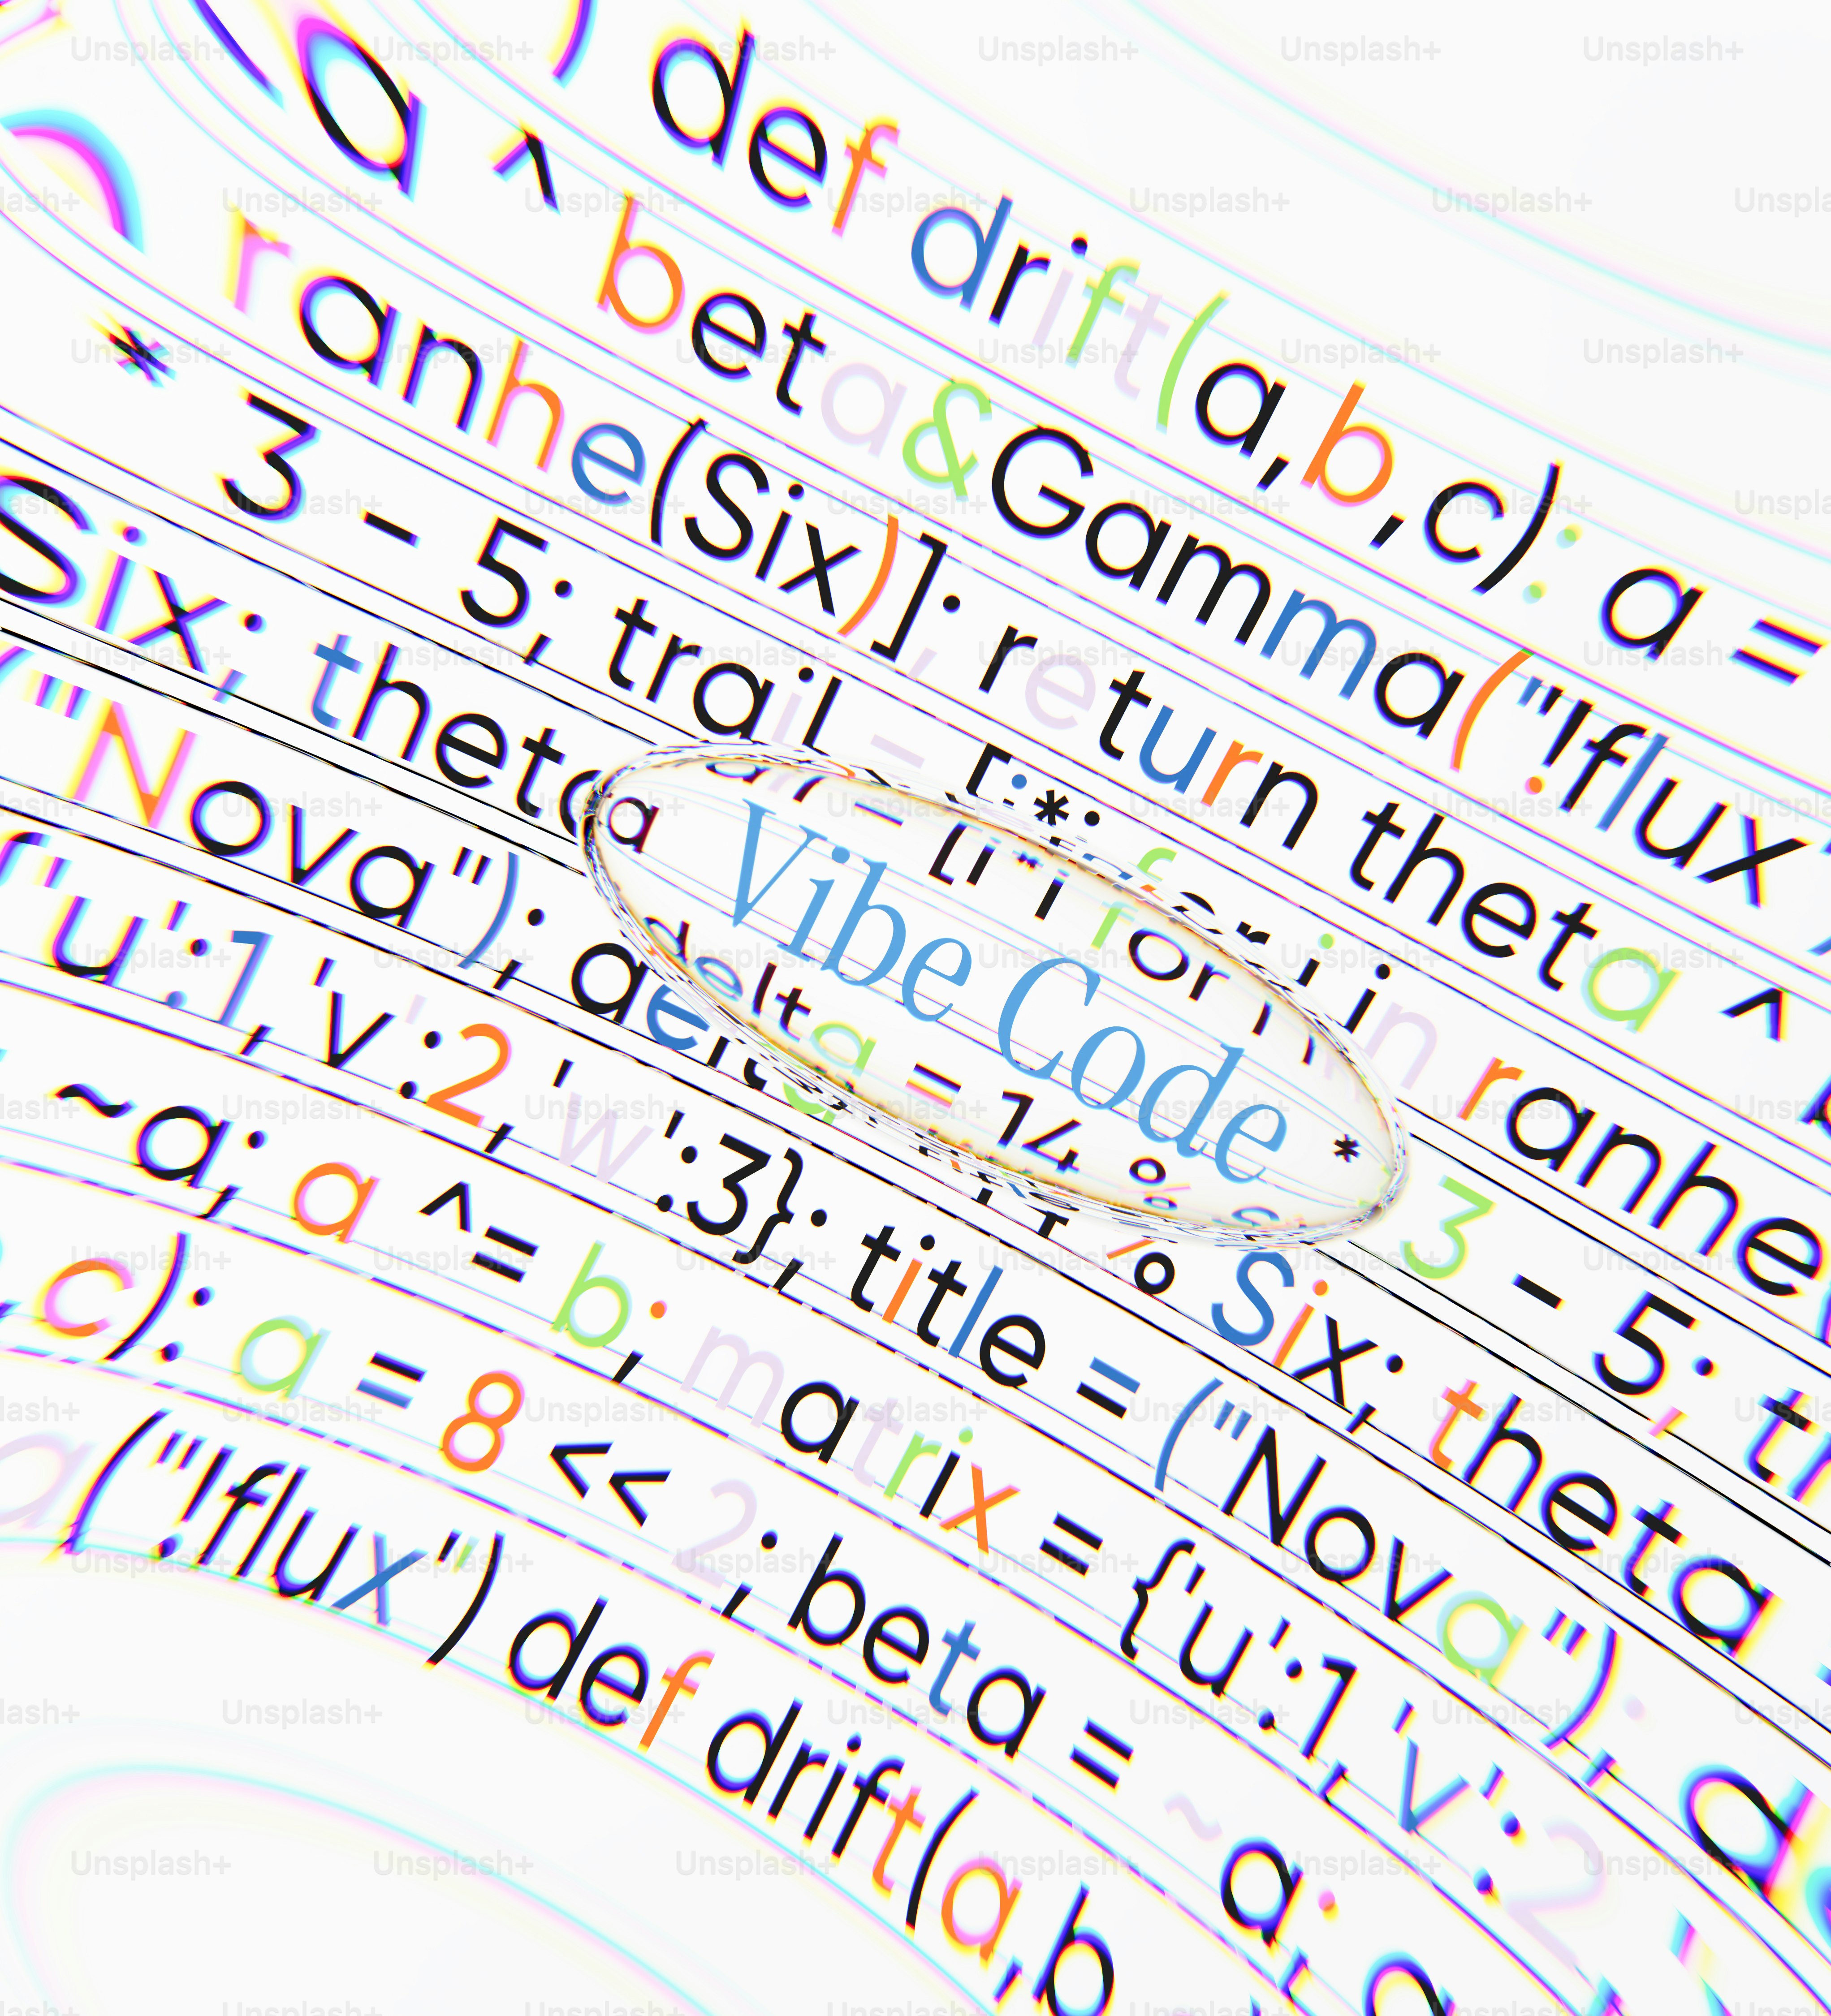 ) def drift(a,b,c): a =
a ^ beta&Gamma("!flux"
ranhe(Six)]; return theta ^
* 3 - 5; trail = [i*i for i in ranhe
Six; theta
Vibe Code
* 3 - 5;
("Nova"); delta = 14 % Six; theta
{'u':1,'v':2,'w':3}; title = ("Nova");
~a; a ^= b; matrix = {'u':1,'v':2
,c): a = 8 << 2; beta = ~a;
a("!flux") def drift(a,b
Unsplash+